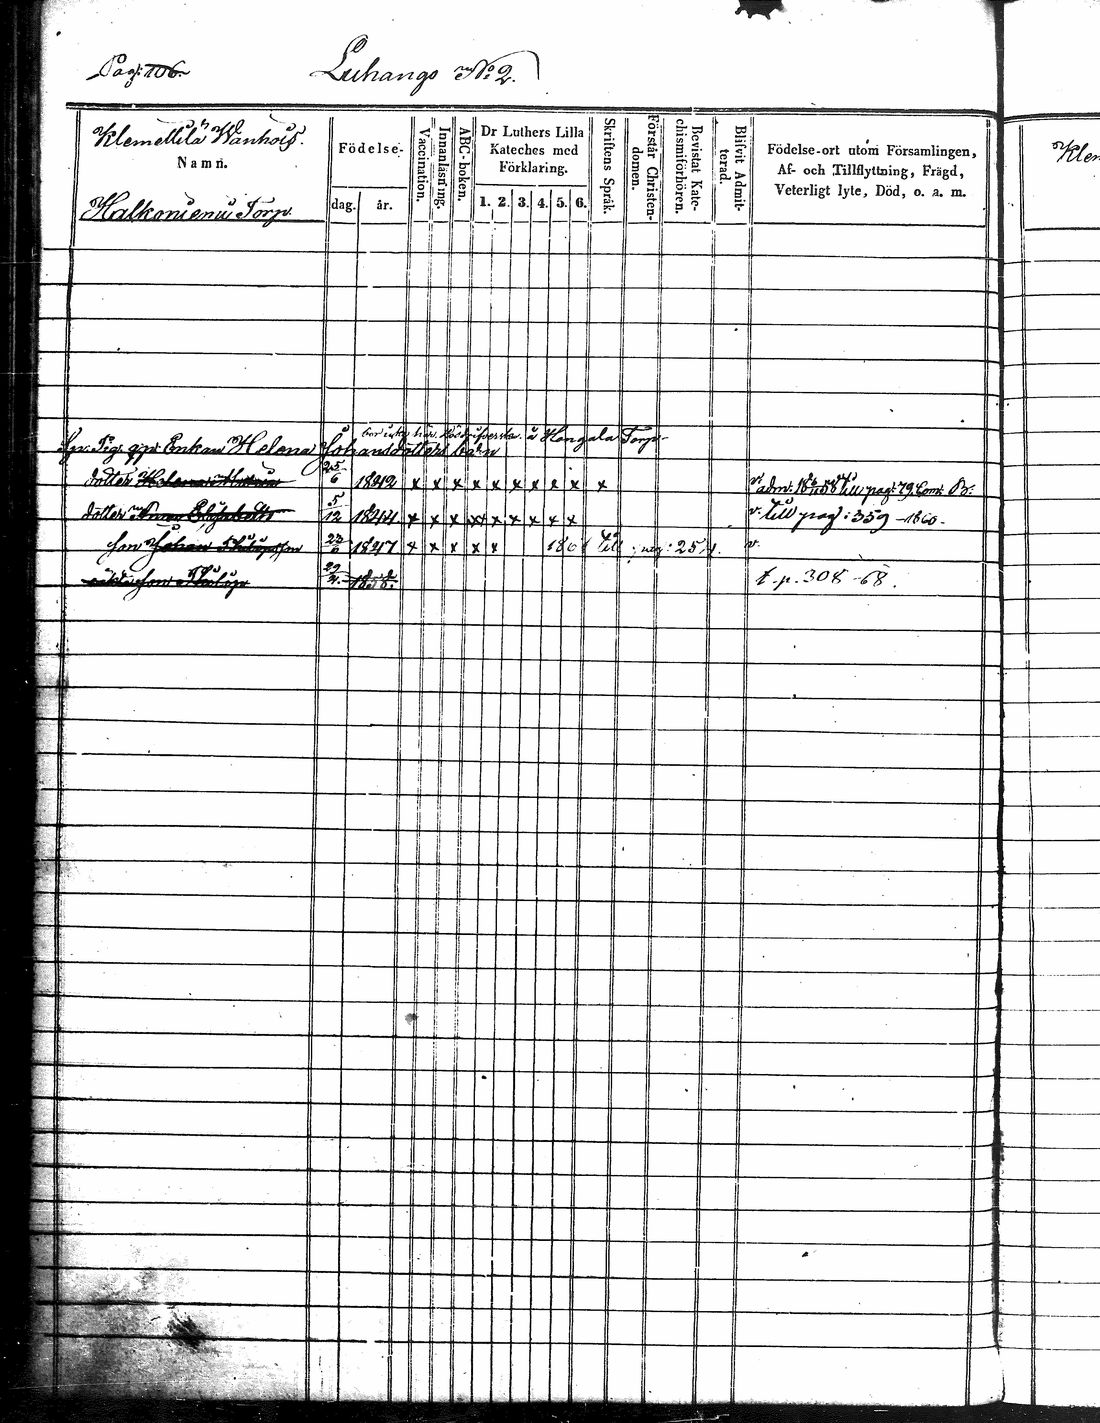 Pag: 106.
Luhango No 2.
Klemettilä Wanhois.
Namn.
Halkoniemi Torp.
Födelse-
dag. år.
Vaccination.
Innanläsning.
ABC-boken.
Dr Luthers Lilla
Kateches med
Förklaring.
1. 2. 3. 4. 5. 6.
Skriftens Språk.
Förstår Christen-
domen.
Bevistat Kate-
chismiförhören.
Blifvit Admit-
terad.
Födelse-ort utom Församlingen,
Af- och Tillflyttning, Frägd,
Veterligt lyte, Död, o. a. m.
Klem
å Hangala Torp
Enkan Helena Johansdotters barn
dotter Helena 25/6 1842 x x x x x x x x x x adm: till pag: 79. Com. B.
dotter Anna Elisabeth 5/12 1844 x x x x x x x x x v. till pag: 359 1860.
son Johan Philipsson 23/6 1847 x x x x x 1861 till pag: 254. v.
son Philip 29/4. 1858. t. p. 308 -68.